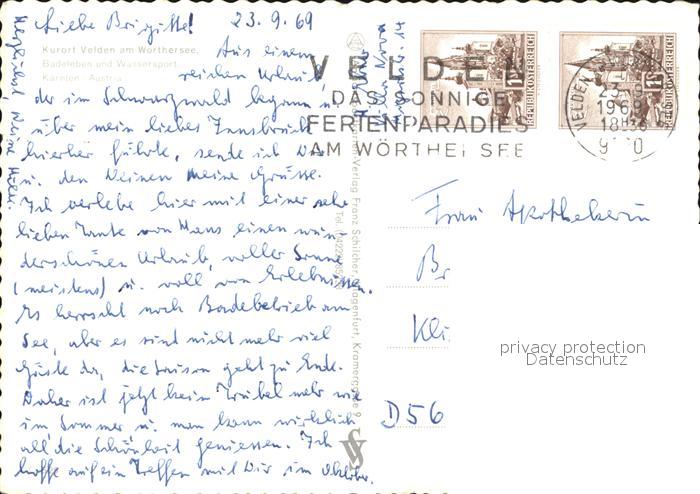 Liebe Brigitte! 23.9.69
Kurort Velden am Wörthersee,
Badeleben und Wassersport
Kärnten - Austria
Aus einem
reichen Urlaub,
der im Schwarzwald begann u.
über mein liebes Innsbruck
hierher führte, sende ich Dir
u. den Deinen meine Grüsse.
Ich verlebe hier mit einer sehr
lieben Tante von Hans einen wun
derschönen Urlaub, voller Sonne
(meistens) u. voll von Erlebnissen.
Es herrscht noch Badebetrieb am
See, aber es sind nicht mehr viel
Gäste da, die Saison geht zu Ende.
Daher ist jetzt kein Trubel mehr wie
im Sommer u. man kann wirklich
all die Schönheit geniessen. Ich
hoffe auf ein Treffen mit Dir im Oktober.
Herzlichst, Deine
VELDEN
DAS SONNIGE
FERIENPARADIES
AM WÖRTHER SEE
REPUBLIK ÖSTERREICH
REPUBLIK ÖSTERREICH
VELDEN
1969
Verlag Franz Schilcher, Klagenfurt, Kramergasse 9
Frau Apothekerin
Br
Kli
D 56
privacy protection
Datenschutz